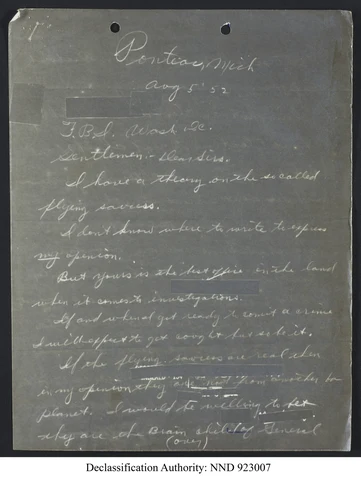 Pontiac, Mich
Aug 5 52
F.B.I. Wash, Dc.
Gentlemen:- Dear Sirs.
I have a theory on the so called
flying saucess.
I don't know where to write to express
my openion.
But yours is the best office in the land
when it comes to investigations.
If and when I get ready to comit a crime
I will expect to get caught before it.
If the flying saucess are real then
in my openion they are not from another
planet. I would be willing to bet
they are the Brain child of General
(over)
Declassification Authority: NND 923007